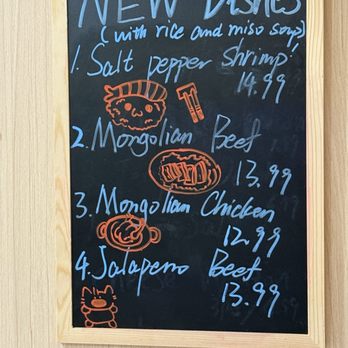 NEW DISHES
(with rice and miso soup)
1. Salt pepper shrimp
14.99
2. Mongolian Beef
13.99
3. Mongolian Chicken
12.99
4. Jalapeno Beef
13.99